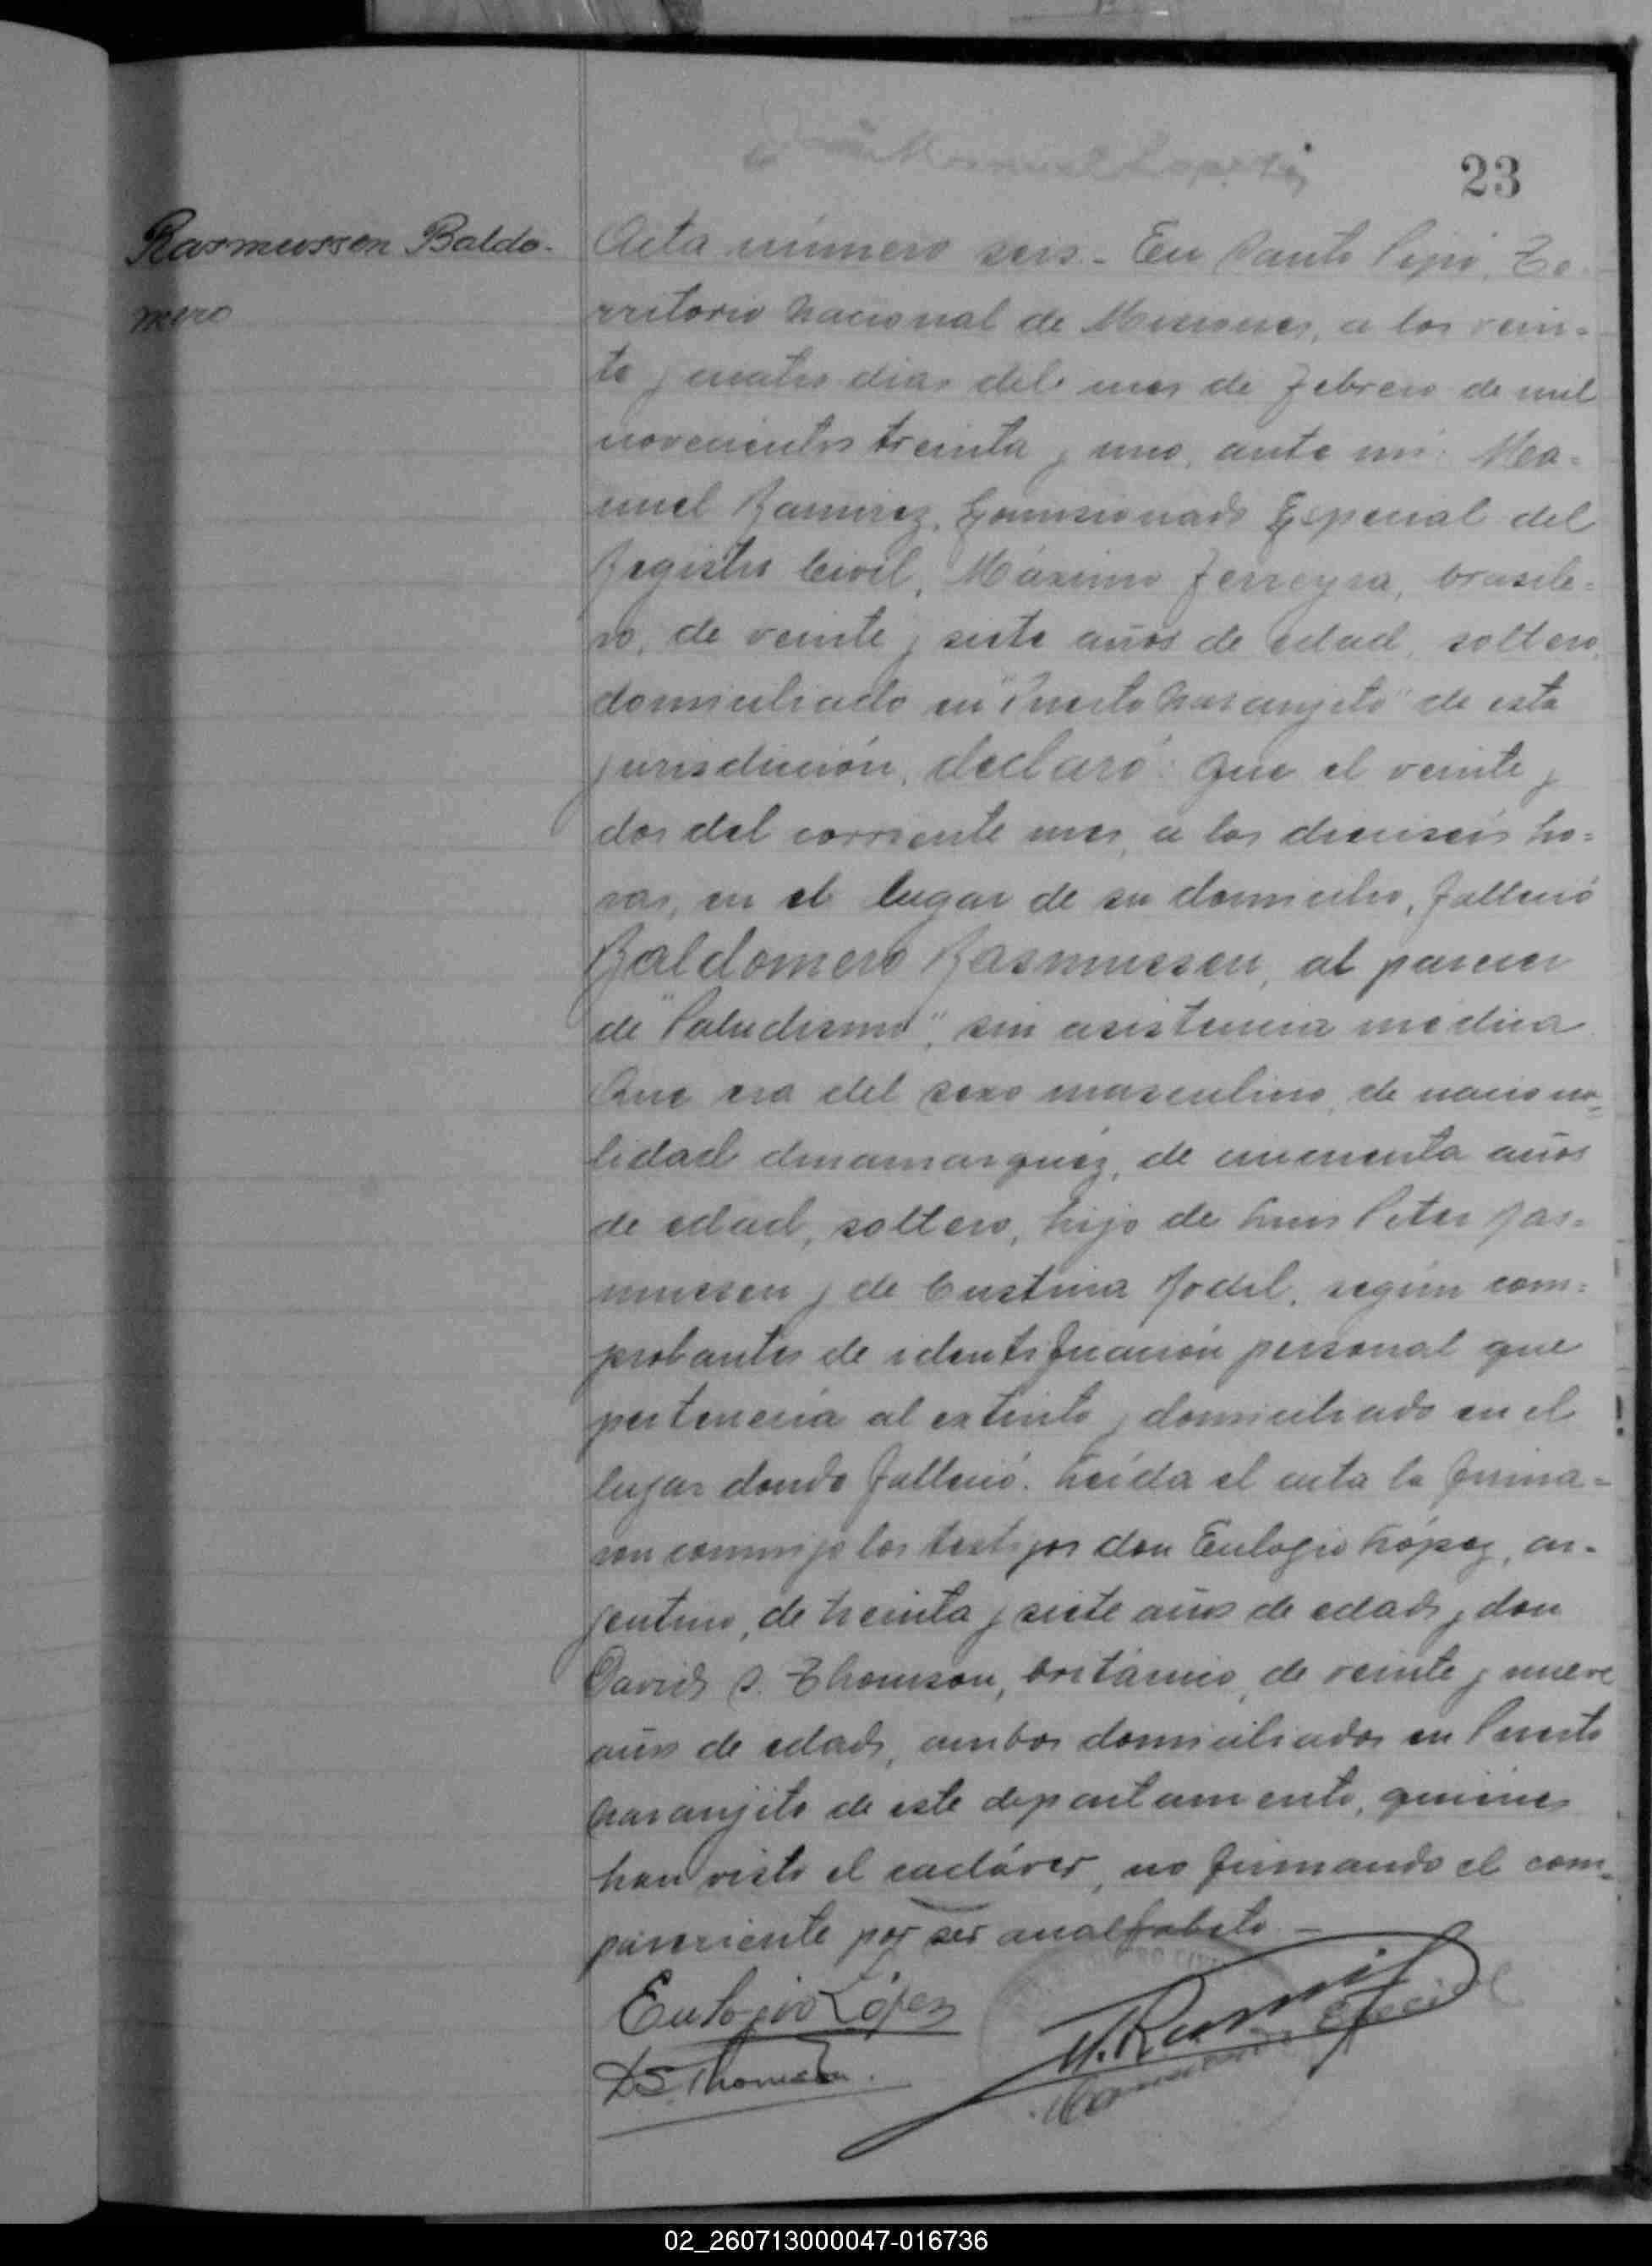 23
Rasmussen Baldo-
mero
Acta número seis. - En Santo Pipó, Te-
rritorio Nacional de Misiones, a los vein-
te y cuatro dias del mes de Febrero de mil
novecientos treinta y uno, ante mí: Ma-
nuel Ramirez, Comisionado Especial del
Registro Civil, Máximo Ferreyra, brasile-
ro, de veinte y siete años de edad, soltero,
domiciliado en "Puerto Naranjito" de esta
jurisdicción, declaró: Que el veinte y
dos del corriente mes, a las dieciseis ho-
ras, en el lugar de su domicilio, falleció
Baldomero Rasmussen, al parecer
de "Paludismo", sin asistencia médica
Que era del sexo masculino, de naciona-
lidad dinamarquéz, de cincuenta años
de edad, soltero, hijo de Luis Peter Ras-
mussen y de Cristina Rodil, según com-
probantes de identificación personal que
pertenecía al extinto y domiciliado en el
lugar donde falleció. Leída el acta la firma-
ron conmigo los testigos don Eulogio López, ar-
gentino, de treinta y siete años de edad y don
David S. Thomson, británico, de veinte y nueve
años de edad, ambos domiciliados en Puerto
Naranjito de este departamento, quienes
han visto el cadáver, no firmando el com-
pareciente por ser analfabeto. -
Eulogio López
D.S. Thomson.
M. Ramirez
Comisionado Especial
02_260713000047-016736